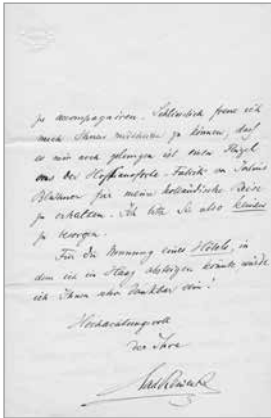 zu accompagniren. Schliesslich freue ich
mich Ihnen mittheilen zu können, daß
es mir noch gelungen ist einen Flügel
aus der Hofpianoforte-Fabrik von Julius
Blüthner für meine holländische Reise
zu erhalten. Ich bitte Sie also keinen
zu besorgen.
Für die Nennung eines Hôtels, in
dem ich in Haag absteigen könnte, würde
ich Ihnen sehr dankbar sein!
Hochachtungsvoll
der Ihre